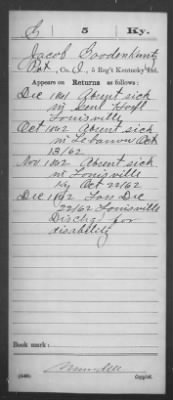 G 5 Ky.
Jacob Goodenkuntz
Pvt, Co. I, 5 Reg't Kentucky Inf.
Appears on
Returns as follows:
Dec 1861 Absent sick
in Genl Hospl
Louisville
Oct 1862 Absent sick
in Lebanon Oct
13/62
Nov 1862 Absent sick
in Louisville
Ky Oct 22/62
Dec 1862 Loss Dec
22/62 Louisville
Dischgd for
disability
Book mark:
(546)
Copyist.